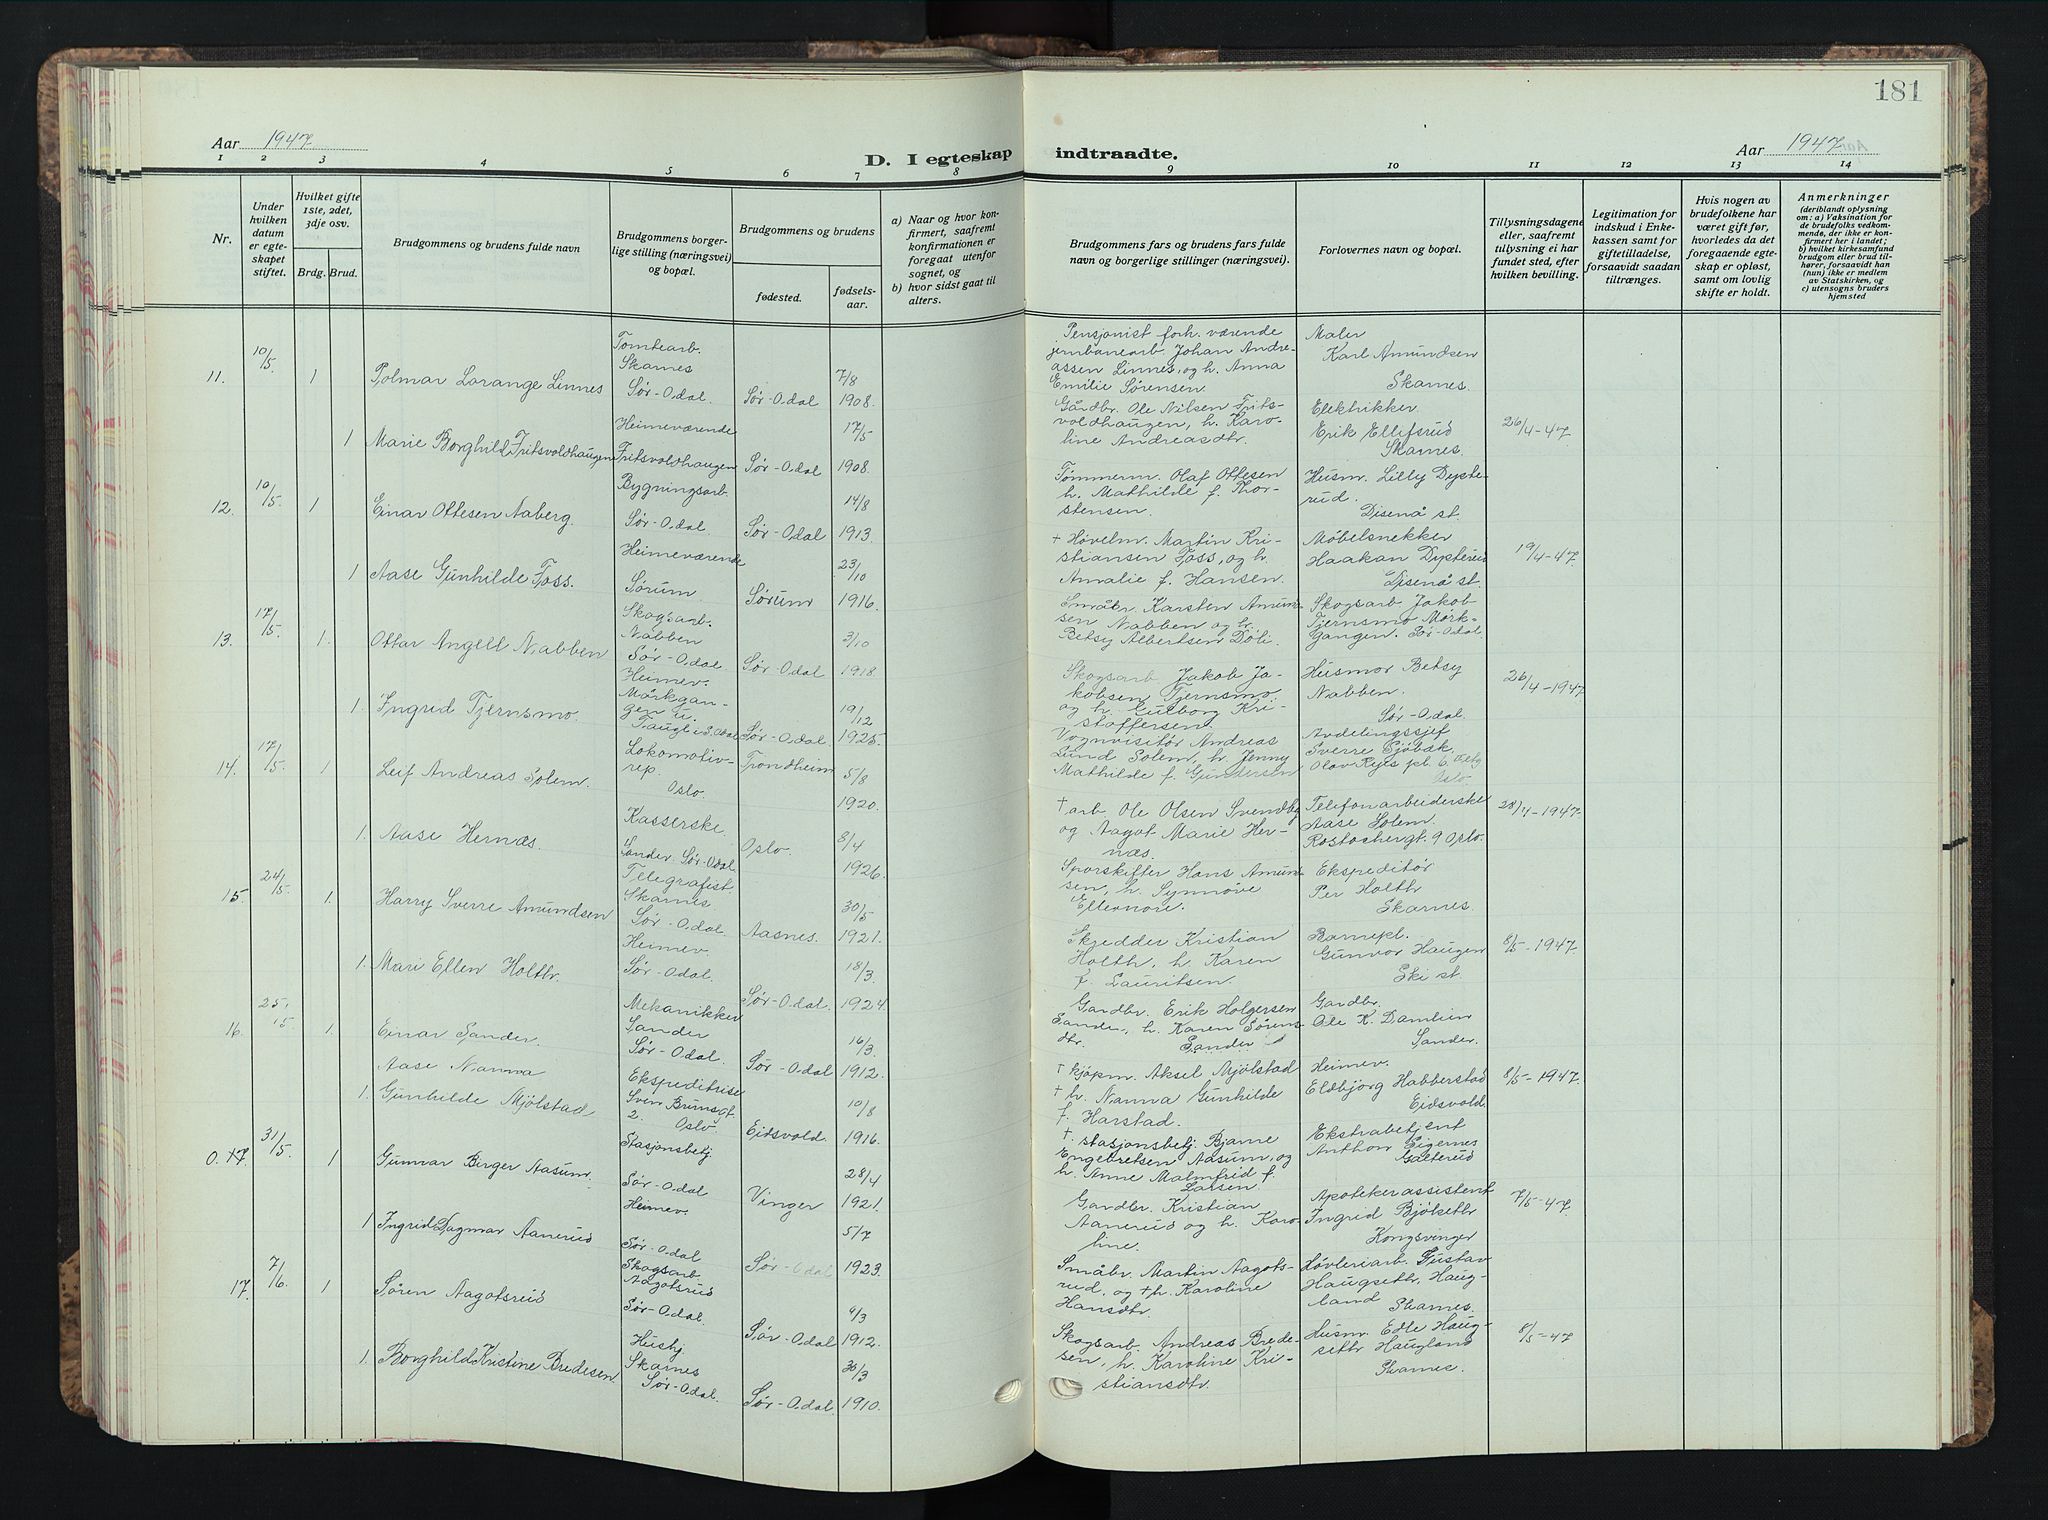 181
Aar 1947
D. I egteskap indtraadte.
Aar 1947
1 2 3 4 5 6 7 8 9 10 11 12 13 14
Nr.
Under hvilken datum er egteskapet stiftet.
Hvilket gifte 1ste, 2det, 3dje osv.
Brdg. Brud.
Brudgommens og brudens fulde navn
Brudgommens borgerlige stilling (næringsvei) og bopæl.
Brudgommens og brudens
fødested.
fødselsaar.
a) Naar og hvor konfirmert, saafremt konfirmationen er foregaat utenfor sognet, og
b) hvor sidst gaat til alters.
Brudgommens fars og brudens fars fulde navn og borgerlige stillinger (næringsvei).
Forlovernes navn og bopæl.
Tillysningsdagene eller, saafremt tillysning ei har fundet sted, efter hvilken bevilling.
Legitimation for indskud i Enkekassen samt for giftetilladelse, forsaavidt saadan tiltrænges.
Hvis nogen av brudefolkene har været gift før, hvorledes da det foregaaende egteskap er opløst, samt om lovlig skifte er holdt.
Anmerkninger
(deriblandt oplysning om: a) Vaksination for de brudefolks vedkommende, der ikke er konfirmert her i landet; b) hvilket kirkesamfund brudgom eller brud tilhører, forsaavidt han (hun) ikke er medlem av Statskirken, og c) utensogns bruders hjemsted
11. 10/5 1 Polmar Lorange Linnes
Tomtearb.
Skarnes
Sør-Odal.
Sør-Odal
7/8
1908.
Pensjonist forh. værende
jernbanearb. Johan Andre-
assen Linnes, og h. Anna
Emilie Sørensen
Maler
Karl Amundsen
Skarnes.
1 Marie Borghild Fritsvoldhaugen
Heimeværende
Fritsvoldhaugen
Sør-Odal
17/5
1908.
Gårdbr. Ole Nilsen Frits-
voldhaugen, h. Karo-
line Andreasdtr.
Elektrikker
Erik Ellefsrud
Skarnes.
26/4-47
12. 10/5 1 Einar Ottesen Aaberg.
Bygningsarb.
Sør-Odal
Sør-Odal
14/8
1913.
Tømmerm. Olaf Ottesen
h. Mathilde f. Thor-
stensen.
Husm. Lilly Dyste-
rud.
Disenå st.
1 Aase Gunhilde Foss.
Heimeværende
Sørum
Sørum
23/10
1916.
+ Høvelm. Martin Kri-
stiansen Foss, og h.
Amalie f. Hansen.
Møbelsnekker
Haakan Dysterud
Disenå st.
19/4-47
13. 17/5. 1. Ottar Angell Nabben
Skogsarb.
Nabben
Sør-Odal
Sør-Odal
3/10
1918.
Småbr. Karsten Amund-
sen Nabben og h.
Betsy Albertsen Döli.
Skogsarb Jakob
Tjernsmo Mørk-
Gangen. Sør-Odal.
1. Ingrid Tjernsmo.
Heimev.
Mørkgan-
gen u.
Taugl i S. Odal
Sør-Odal.
19/12
1925.
Skogsarb Jakob Ja-
kobsen Tjernsmo,
og h. Gulborg Kri-
stoffersen.
Husmor Betsy
Nabben.
Sør-Odal.
26/4-1947
14. 17/5. 1 Leif Andreas Solem.
Lokomotiv-
rep.
Oslo.
Trondheim
5/8
1920.
Vognvisitør Andreas
Lund Solem, h. Jenny
Mathilde f. Gundersen
Avdelingssjef
Sverre Sjöbæk,
Olav Ryes pl. 6
Oslo
1. Aase Hernæs.
Kasserske.
Sander. Sør-Odal
Oslo.
8/4
1926.
+ arb Ole Olsen Svendby
og Aagot Marie Her-
næs.
Telefonarbeiderske
Aase Solem.
Rostochergt. 9 Oslo.
28/4-1947.
15. 24/5. 1. Harry Sverre Amundsen
Telegrafist.
Skarnes.
Sør-Odal
Aasnes.
30/5
1921.
Sporskifter Hans Amund-
sen, h. Synnöve
Elleonore.
Ekspeditør
Per Holth
Skarnes.
1. Mari Ellen Holth.
Heimev.
Sør-Odal.
Sør-Odal.
18/3
1924.
Skredder Kristian
Holth, h. Karen
f. Lauritsen.
Barnepl.
Gunvor Haugen
Ski st.
8/5-1947.
16. 25/5 1. Einar Sander.
Mekanikker
Sander
Sør-Odal.
Sør-Odal
16/3.
1912.
Gardbr. Erik Holgersen
Sander, h. Karen Sørens-
dtr. Sander
Gardbr.
Ole K. Damlien
Sander.
Aase Nanna
1. Gunhilde Mjölstad
Ekspeditrise
Sven Brunsgt.
2.
Oslo.
Eidsvold.
10/8
1916.
+ kjøpm. Aksel Mjölstad
+ h. Nanna Gunhilde
f. Harstad.
Heimev.
Eldbjorg Habberstad
Eidsvold.
8/5-1947.
0. 17. 31/5. 1 Gunnar Birger Aasum.
Stasjonsbetj.
Sør-Odal
Vinger
28/4
1921.
+. stasjonsbetj. Bjarne
Engebretsen Aasum, og
h. Anne Malmfrid f.
Larsen
Ekstrabetjent
Anthon Sigernes
Galterud
1 Ingrid Dagmar Aanerud
Heimev.
Sør-Odal
Sør-Odal
5/7
1923.
Gardbr. Kristian
Aanerud og h. Karo-
line.
Apotekerassistent
Ingrid Bjölseth
Kongsvinger
7/5-47.
17. 7/6. 1 Søren Aagotsrud
Skogsarb
Aagotsrud
Sør-Odal.
Sør-Odal
9/3
1912.
Småbr. Martin Aagots-
rud, og +h. Karoline
Hansdtr.
Høvleriarb. Gustav
Haugseth, Haug-
land
Skarnes.
1. Borghild Kristine Bredesen.
Hushj.
Skarnes
Sør-Odal.
Sør-Odal.
30/3
1910.
Skogsarb. Andreas Brede-
sen, h. Karoline Kri-
stiansdtr.
Husm. Edle Haug-
seth Haugland
Skarnes.
8/5-47